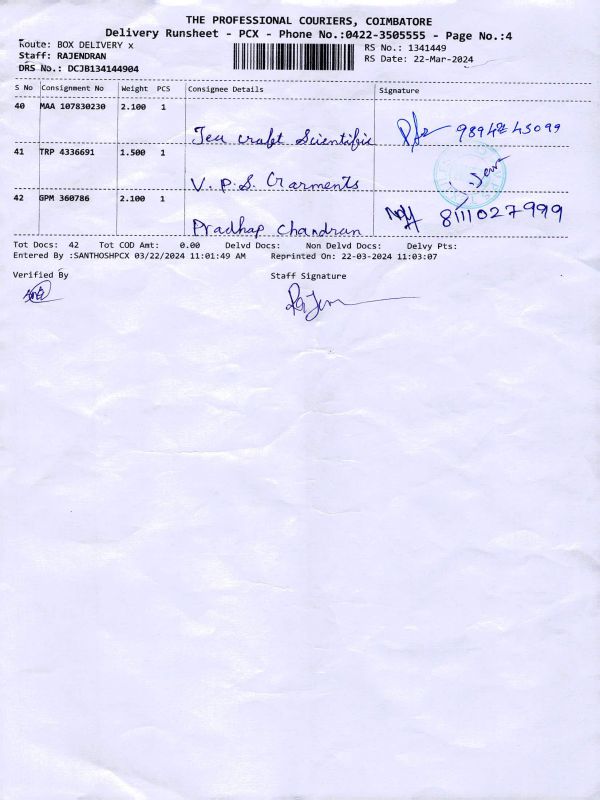 THE PROFESSIONAL COURIERS, COIMBATORE
Delivery Runsheet - PCX - Phone No.:0422-3505555 - Page No.:4
Route: BOX DELIVERY x
RS No.: 1341449
Staff: RAJENDRAN
RS Date: 22-Mar-2024
DRS No.: DCJB134144904
S No Consignment No Weight PCS Consignee Details Signature
40 MAA 107830230 2.100 1
Tea craft Scientific 98942 45099
41 TRP 4336691 1.500 1
V. P. S. Garments
42 GPM 360786 2.100 1
Pradhap Chandran 8111027999
Tot Docs: 42 Tot COD Amt: 0.00 Delvd Docs: Non Delvd Docs: Delvy Pts:
Entered By :SANTHOSHPCX 03/22/2024 11:01:49 AM Reprinted On: 22-03-2024 11:03:07
Verified By Staff Signature